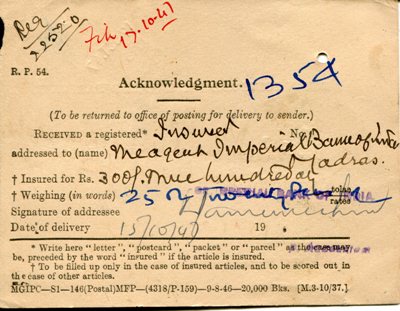 Reg
2252.0
17-10-47
R. P. 54.
Acknowledgment.
1354
(To be returned to office of posting for delivery to sender.)
RECEIVED a registered* Insured No.
addressed to (name) The agent Imperial Bank of India
Madras.
† Insured for Rs. 300/- Three hundred
† Weighing (in words) 25 tolas
IMPERIAL BANK OF INDIA
Signature of addressee
Date of delivery 15/10/47 19
* Write here "letter", "postcard", "packet" or "parcel" as the case may
be, preceded by the word "insured" if the article is insured.
† To be filled up only in the case of insured articles, and to be scored out in
the case of other articles.
MGIPC—S1—146(Postal)MFP—(4318/P-159)—9-8-46—20,000 Bks. [M.3-10/37.]